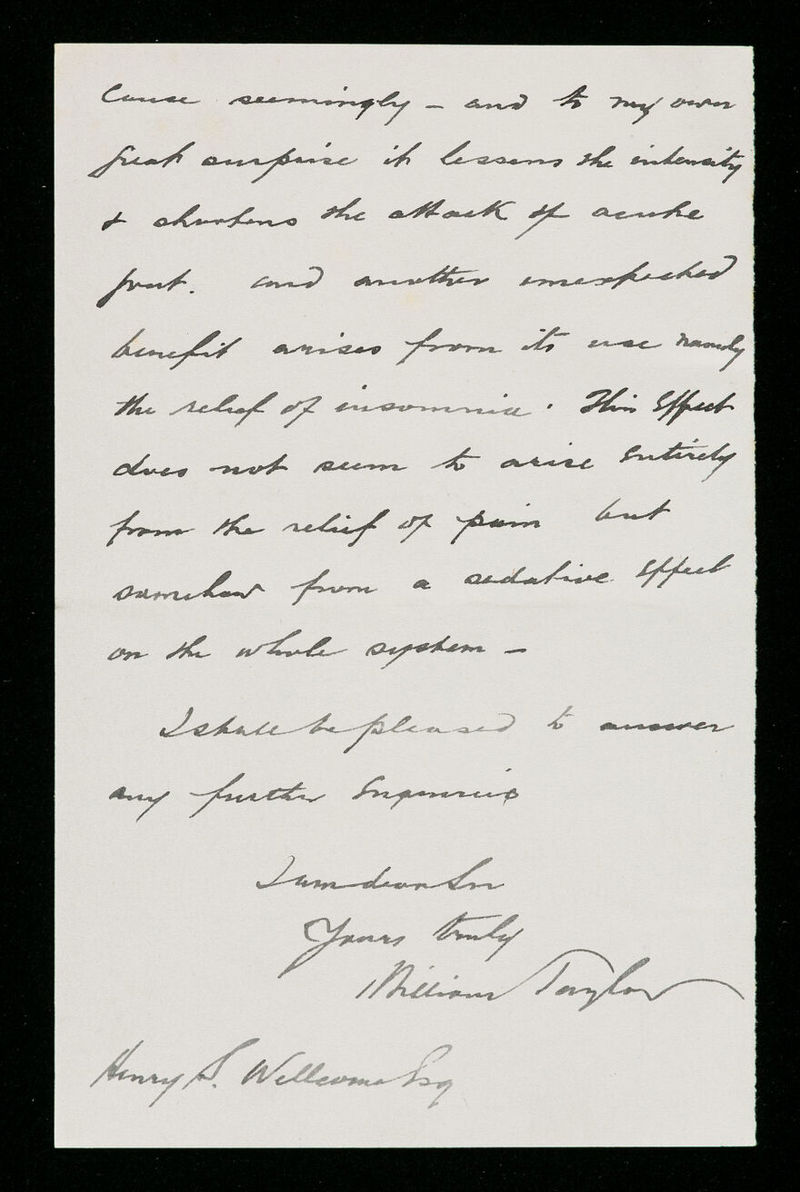 Cause seemingly – and to my own
great surprise it lessens the intensity
& shortens the attack of acute
gout. and another unexpected
benefit arises from its use namely
the relief of insomnia. This Effect
does not seem to arise Entirely
from the relief of pain but
somehow from a sedative Effect
on the whole system –
I shall be pleased to answer
any further Enquiries
I am dear Sir
Yours truly
William Taylor
Henry S. Wellcome Esq